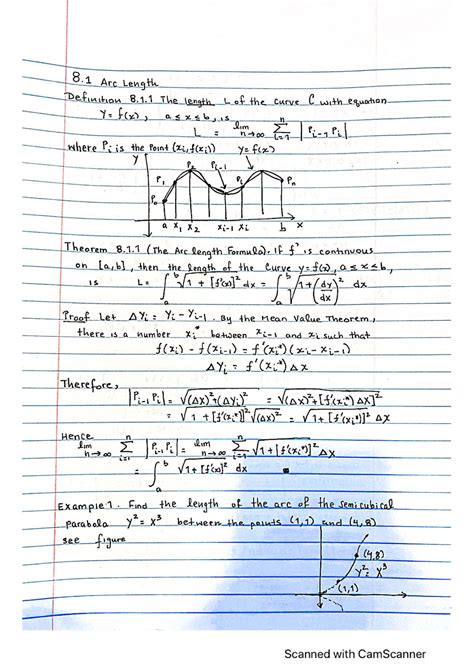 8.1 Arc Length
Definition 8.1.1 The length L of the curve C with equation
y = f(x), a ≤ x ≤ b, is
L = lim n→∞ n Σ i=1 |P_{i-1} P_i|
where P_i is the point (x_i, f(x_i)) y = f(x)
y
P_0 P_1 P_2 P_{i-1} P_i P_n
a x_1 x_2 x_{i-1} x_i b x
Theorem 8.1.1 (The Arc length Formula). If f' is continuous
on [a,b], then the length of the curve y = f(x), a ≤ x ≤ b,
is L = ∫_a^b √(1 + [f'(x)]²) dx = ∫_a^b √(1 + (dy/dx)²) dx
Proof Let ΔY_i = Y_i - Y_{i-1}. By the Mean Value Theorem,
there is a number x_i* between x_{i-1} and x_i such that
f(x_i) - f(x_{i-1}) = f'(x_i*)(x_i - x_{i-1})
ΔY_i = f'(x_i*) Δx
Therefore,
|P_{i-1} P_i| = √((Δx)² + (ΔY_i)²) = √((Δx)² + [f'(x_i*) Δx]²)
= √(1 + [f'(x_i*)]²) √((Δx)²) = √(1 + [f'(x_i*)]²) Δx
Hence
lim n→∞ n Σ i=1 |P_{i-1} P_i| = lim n→∞ n Σ i=1 √(1 + [f'(x_i*)]²) Δx
= ∫_a^b √(1 + [f'(x)]²) dx ■
Example 1. Find the length of the arc of the semicubical
parabola y² = x³ between the points (1,1) and (4,8)
see figure
(4,8)
y² = x³
(1,1)
Scanned with CamScanner